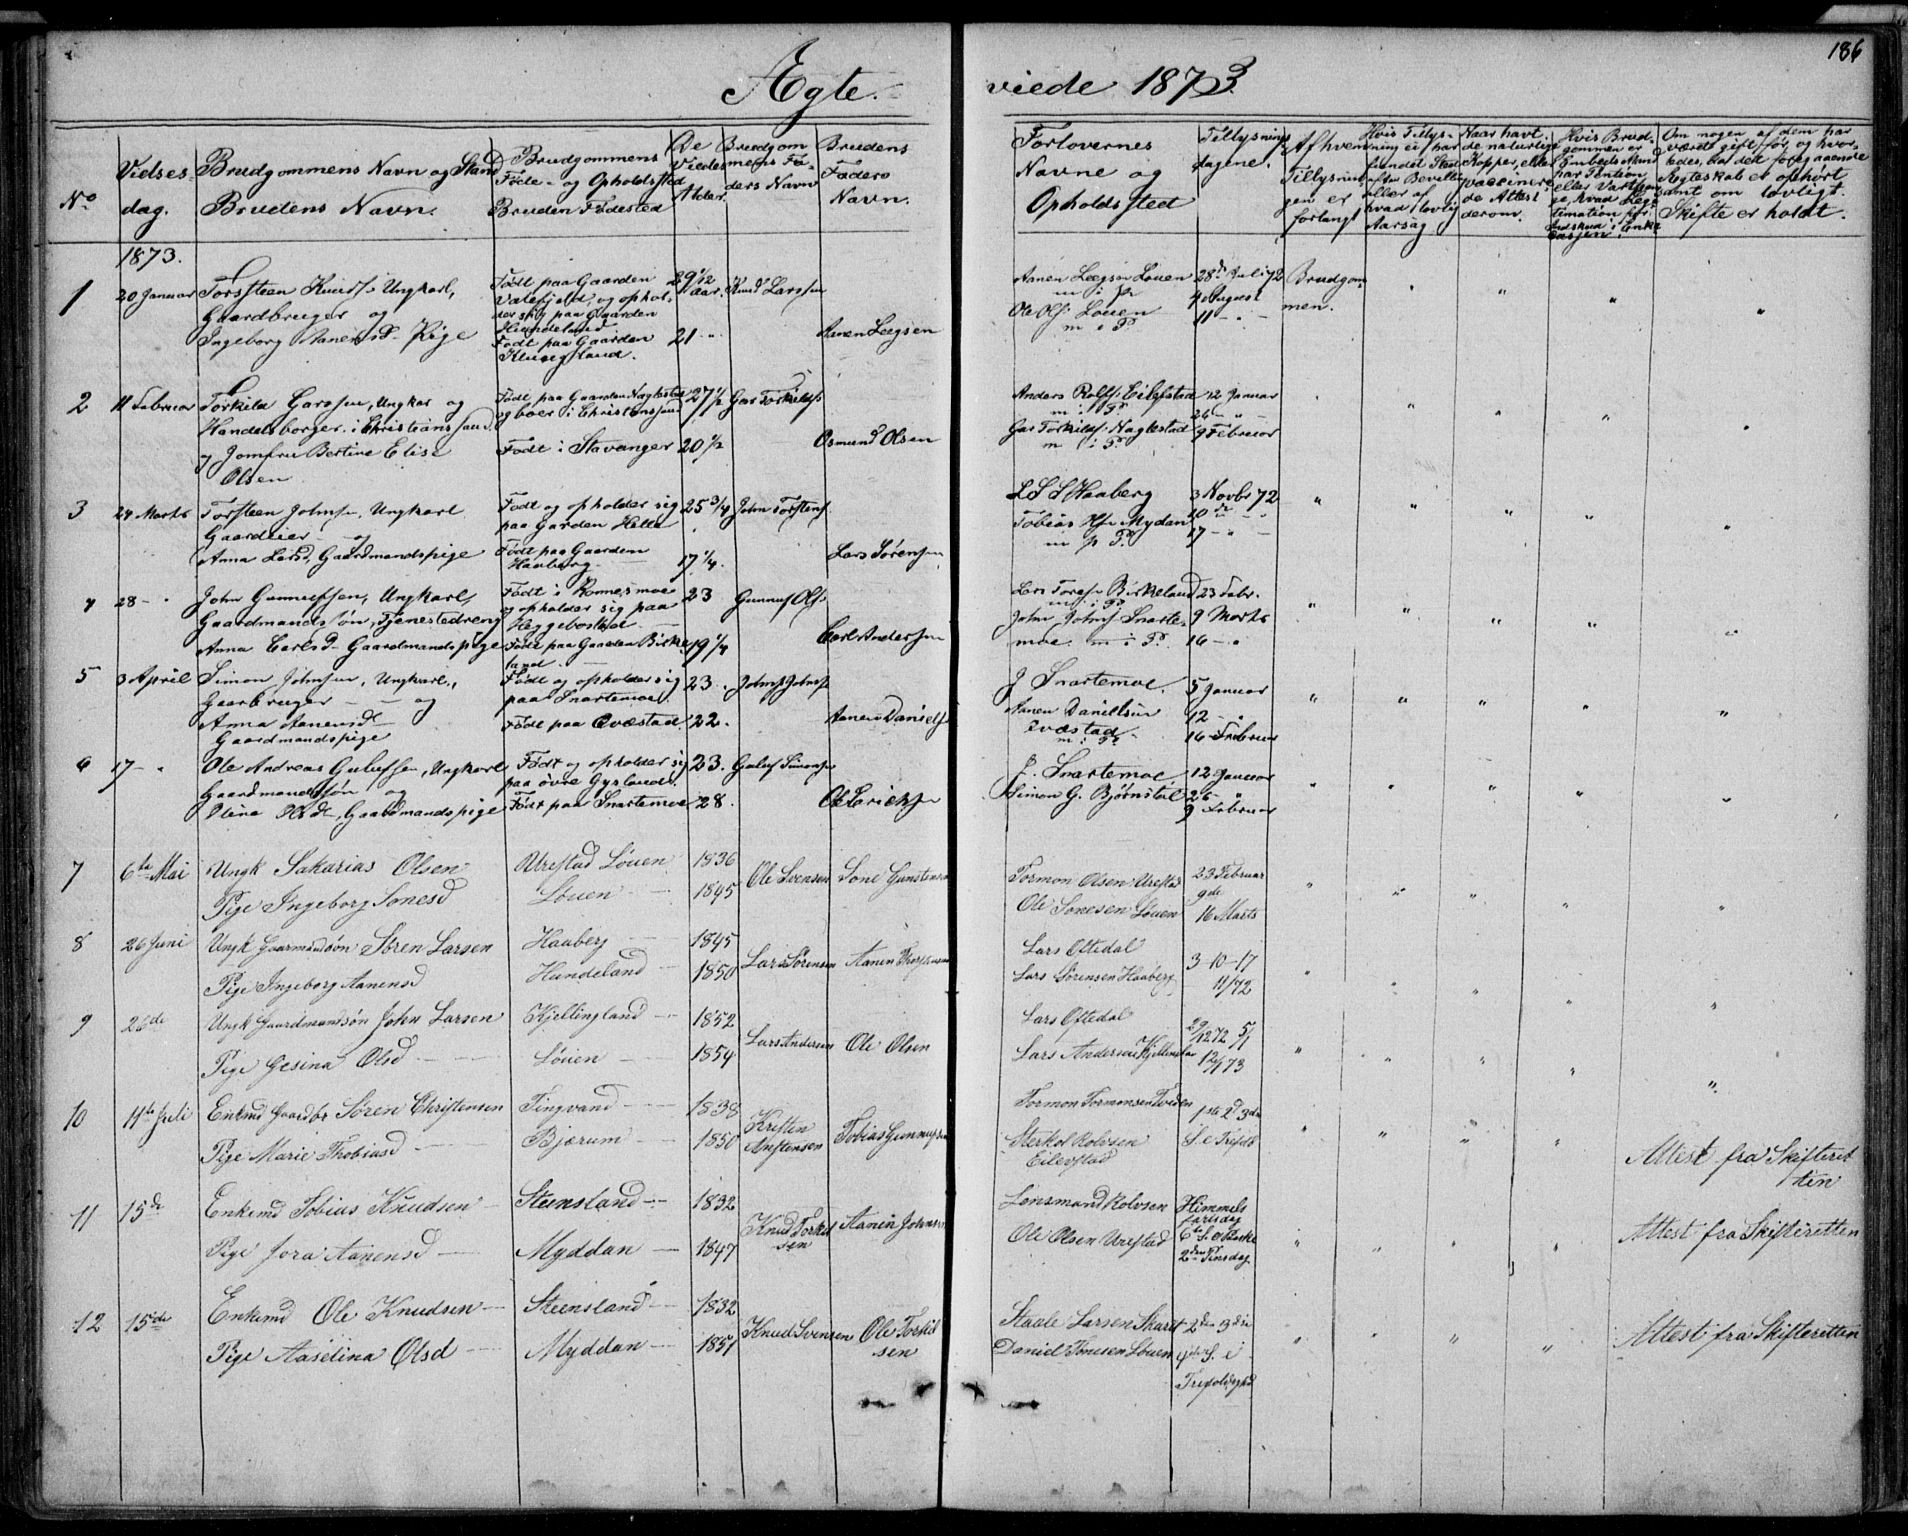 186
Ægte. viede 1873.
No
Vielses-
dag.
Brudgommens Navn og Stand
Brudens Navn.
Brudgommens
Føde- og Opholdssted
Bruden Fødested
De
Viedes
Alder.
Brudgom
mens Fa-
ders Navn
Brudens
Faders
Navn.
Forlovernes
Navne og
Opholdssted
Tillysnings
dagene.
Af hvem
Tillysnin
gen er
forlangt
Hvis Tillys-
ning ei har
fundet Sted
efter Bevilling
eller af
hvad lovlig
Aarsag
Naar havt
de naturlige
Kopper, eller
vaccinere
de Attest
derom.
Hvis Brud-
gommen er
Embeds Mand
har Pention
eller Vartpen
ge, hvad Legi
timation for
Indskud i Enke
cassen.
Om nogen af dem har
været gift før, og hvor-
ledes, har det foregaaende
Ægteskab er ophørt
samt om lovligt
Skifte er holdt.
1873.
1 20 Januar Torsteen Knuds. Ungkarl,
Gaardbruger og
Ingeborg Aanensd. Pige
Født paa Gaarden
Vatefjeld, og ophol-
der sig paa Gaarden
Hundeland.
Født paa Gaarden
29 1/12
Aar.
21
Knud Larssen
Aanen Legsen
Aanen Legsen Løuen
m i P.
Ole Ols. Løuen
m i P.
28de Juli 72
4 August
11 - -
Brudgom
men.
2 11 Februar Torkild Garssen, Ungkar og
Handelsborger i Christiansand
og Jomfru Bertine Elise
Olsen
Født paa Gaarden Naglestad
og boer i Christianssand
Født i Stavanger
27 1/2
20 1/2
Gar Torkilds.
Osmund Olsen
Anders Rolfs. Eilefstad
m i P.
Gar Torkilds. Naglestad
m i P.
12 Januar
26 - -
9 Februar
3 24 Marts Torsteen Johns., Ungkarl
Gaardeier og
Anna Larsd. Gaardmandspige
Født og opholder sig
paa Garden Helle
Født paa Gaarden
Haaberg
25 3/4
17 1/4.
John Torstens.
Lars Sørensen
L S S Haaberg
Tobias Mydan
m p P.
3 Novbr 72
10de - -
17 - -
4 28 - John Gunnufsen, Ungkarl,
Gaardmandssøn, Tjenestedreng
Anna Carlsd. Gaardmandspige
Født i Konnesmoe
og opholder sig paa
Heggebostad
Født paa Gaarden Birke
land.
23
19 1/4
Gunnuf Ols.
Carl Andersen
Lars Tores. Birkeland
m i P.
John Johns. Snarte-
moe. m i P.
23 Febr.
9 Marts
16 -
5 3 April Simon Johnsen, Ungkarl,
Gaarbruger og
Anna Aanensd
Gaardmandspige
Født og opholder sig
paa Snartemoe
Født paa Qvæstad.
23.
22.
Johns. Johns.
Aanen Daniels.
J Snartemoe.
Aanen Danielsen
Qvæstad
m i P.
5 Januar
12 -
16 Februar
6 17 - Ole Andreas Gulufsen, Ungkarl
Gaardmandssøn og
Elina Olsd., Gaardmandspige
Født og opholder sig
paa øvre Gyrland.
Født paa Snartemoe
23.
28.
Guluf Simons.
Ole Lorichsen
J. Snartemoe
Simon G. Bjørnstøl
12 Januar
26 -
9 Februar
7 6te Mai Ungk Sakarias Olsen
Pige Ingeborg Sonesd
Urestad Løuen
Løuen
1836
1845
Ole Svensen Sone Gunstensen
Tormon Olsen Urestad
Ole Sonesen Løuen
23 Februar
9de
16 Marts
8 26 Juni Ungk Gaarmandsøn Søren Larsen
Pige Ingeborg Aanensd
Haaberg
Hundeland
1845
1850
Lars Sørensen Aanen Thorstensen
Lars Oftedal
Lars Sørensen Haaberg
3-10-17
11/72
9 26de Ungk Gaardmandsøn John Larsen
Pige Gesina Olsd
Kjellingland
Løuen
1852
1854
Lars Andersen Ole Olsen
Lars Oftedal
Lars Andersen Kjellingland
29/12 72 5/1
12/1 73
10 11te Juli Enkmd Gaardbr Søren Christensen
Pige Marie Thobiasd
Tingvand
Bjærum
1838
1850
Kristen
Anstensen
Tobias Gunnufsen
Tormon Tormonsen Tveden
Sterkol Rolvsen
Eilevstad
1ste 2d 3die
S. e Trefold
Attest fra Skifteret
ten
11 15de Enkemd Tobias Knudsen
Pige Jora Aanensd
Steensland
Myddan
1832
1847
Knud Torkel
sen
Aanen Johnsen
Lensmand Rolvsen
Ole Olsen Urestad
Himmels
fartsdag
6te S. e Paaske
2den Pinsdag
Attest fra Skifteretten
12 15de Enkemd Ole Knudsen
Pige Aaselina Olsd
Steensland
Myddan
1832
1851
Knud Svensen Ole Torkil
sen
Staale Larsen Skarst
Daniel Tønesen Løuen
2den 3die
4de S. e
Trefoldighd
Attest fra Skifteretten